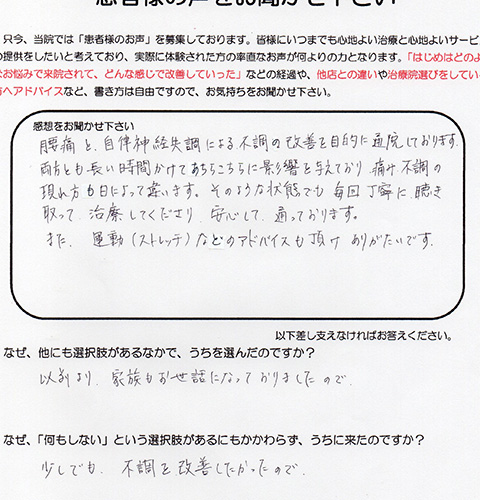 患者様の声をお聞かせ下さい
只今、当院では「患者様のお声」を募集しております。皆様にいつまでも心地よい治療と心地よいサービ
の提供をしたいと考えており、実際に体験された方の率直なお声が何よりの力となります。「はじめはどのよ
なお悩みで来院されて、どんな感じで改善していった」などの経過や、他店との違いや治療院選びをしてい
方へアドバイスなど、書き方は自由ですので、お気持ちをお聞かせ下さい。
感想をお聞かせ下さい
腰痛と、自律神経失調による不調の改善を目的に通院しております。
両方とも長い時間かけてあちらこちらに影響を与えており 痛み、不調の
現れ方も日によって違います。そのような状態でも毎回丁寧に聴き
取って、治療してくださり、安心して、通っております。
また、運動(ストレッチ)などのアドバイスも頂け ありがたいです。
以下差し支えなければお答えください。
なぜ、他にも選択肢があるなかで、うちを選んだのですか?
以前より、家族もお世話になっておりましたので、
なぜ、「何もしない」という選択肢があるにもかかわらず、うちに来たのですか?
少しでも、不調を改善したかったので、